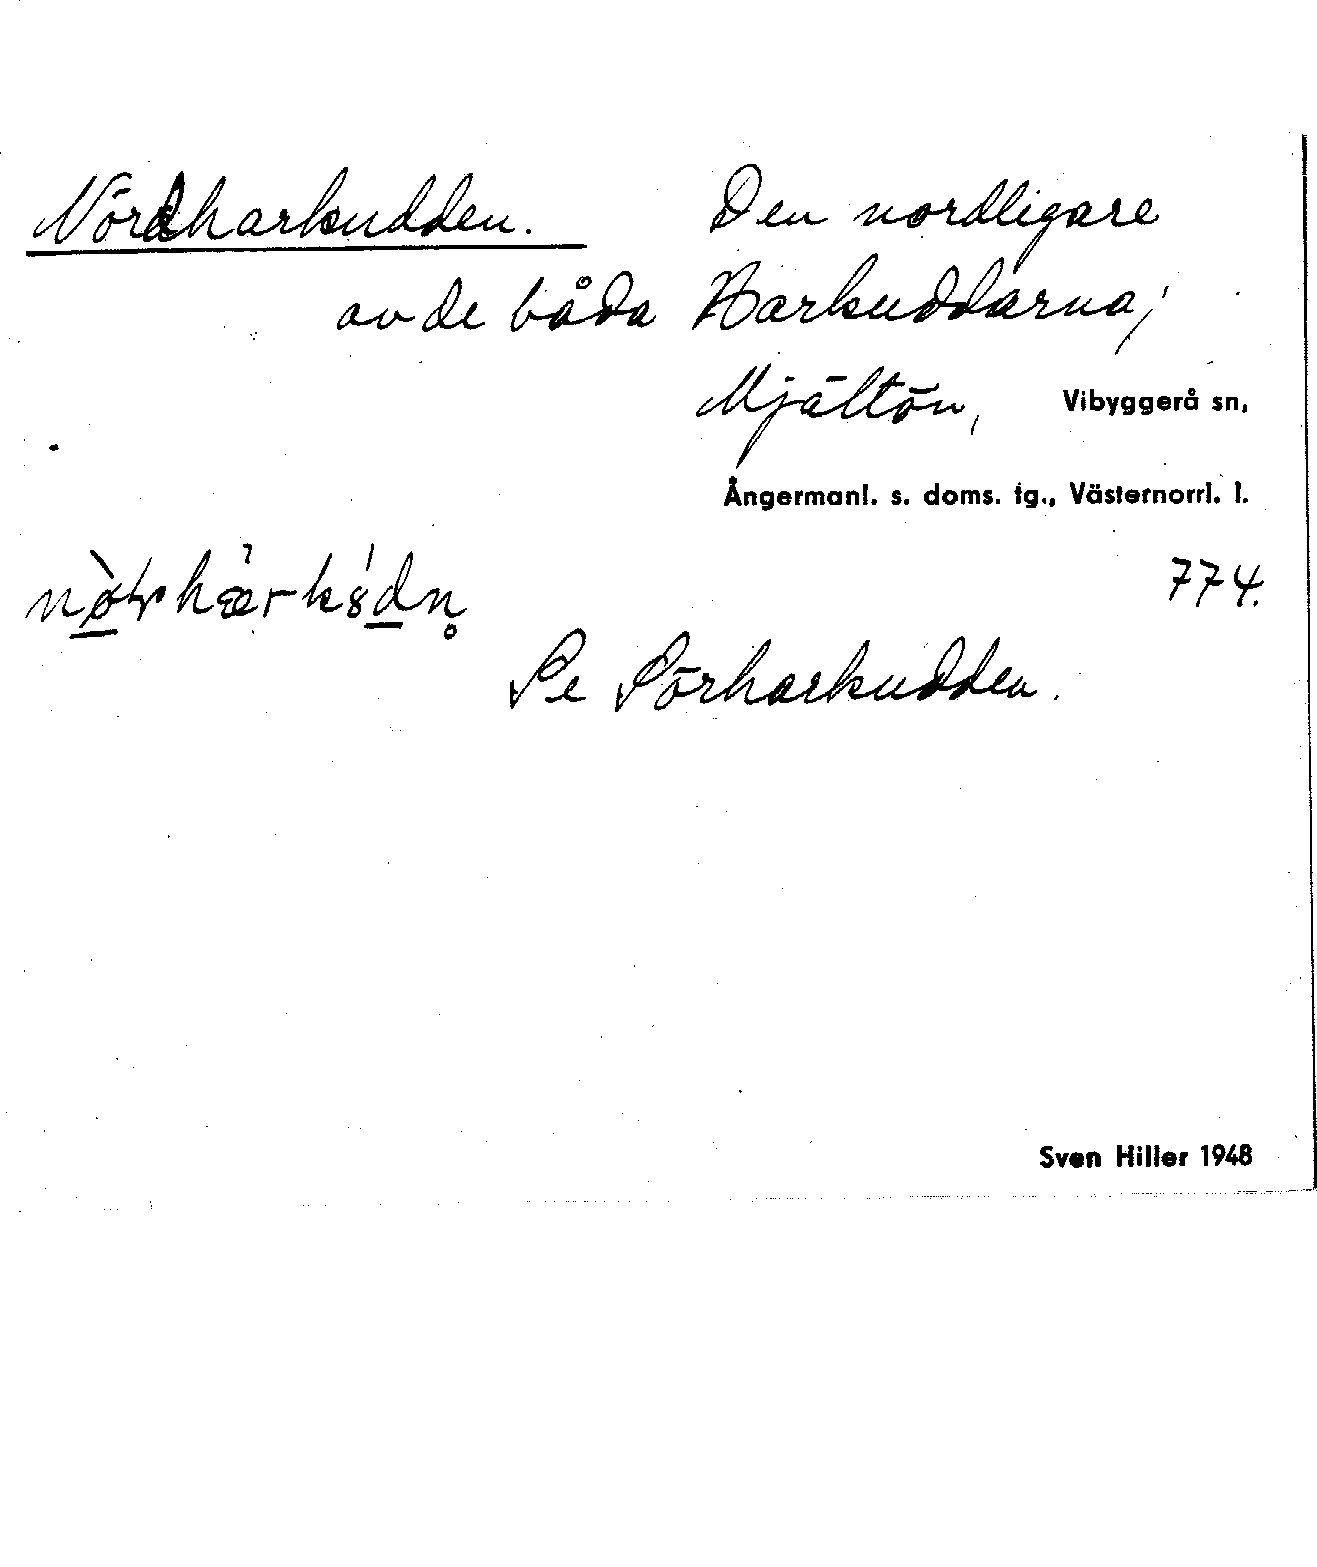 Nördharkudden. Den nordligare
av de båda Harkuddarna;
Mjältön, Vibyggerå sn,
Ångermanl. s. doms. tg., Västernorrl. l.
774.
Se Sörharkudden.
Sven Hiller 1948